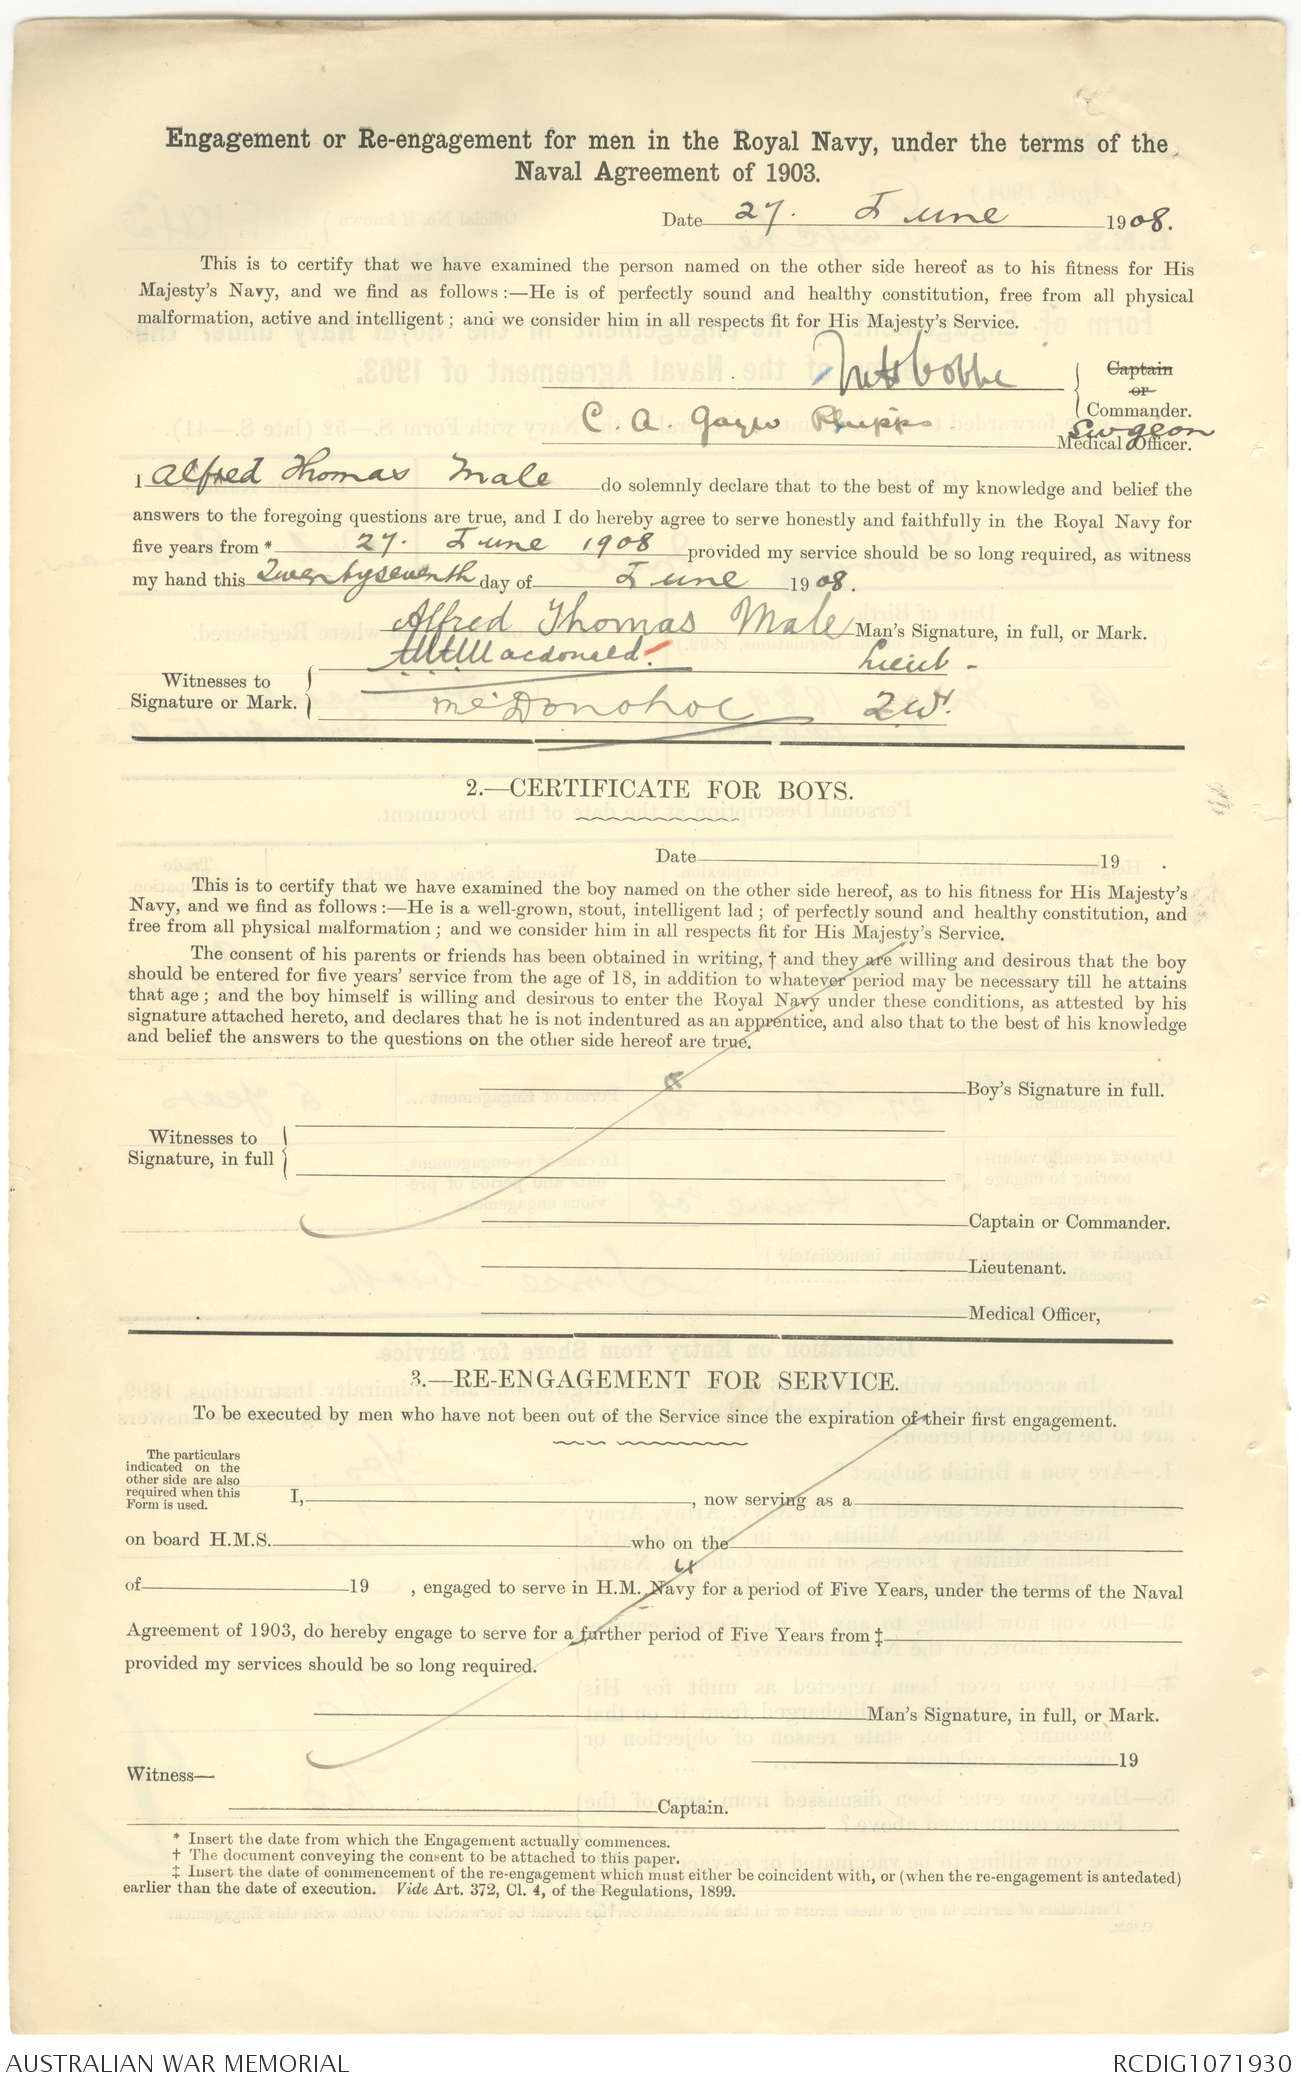 Engagement or Re-engagement for men in the Royal Navy, under the terms of the
Naval Agreement of 1903.
Date 27. June 1908.
This is to certify that we have examined the person named on the other side hereof as to his fitness for His
Majesty's Navy, and we find as follows:—He is of perfectly sound and healthy constitution, free from all physical
malformation, active and intelligent; and we consider him in all respects fit for His Majesty's Service.
Cobbe
Captain
or
Commander.
C. A. Phipps
Surgeon
Medical Officer.
I Alfred Thomas Male do solemnly declare that to the best of my knowledge and belief the
answers to the foregoing questions are true, and I do hereby agree to serve honestly and faithfully in the Royal Navy for
five years from * 27. June 1908 provided my service should be so long required, as witness
my hand this Twentyseventh day of June 1908.
Alfred Thomas Male Man's Signature, in full, or Mark.
Witnesses to
Signature or Mark.
Macdonald. Lieut -
McDonohoe
2.—CERTIFICATE FOR BOYS.
Date 19 .
This is to certify that we have examined the boy named on the other side hereof, as to his fitness for His Majesty's
Navy, and we find as follows:—He is a well-grown, stout, intelligent lad; of perfectly sound and healthy constitution, and
free from all physical malformation; and we consider him in all respects fit for His Majesty's Service.
The consent of his parents or friends has been obtained in writing, † and they are willing and desirous that the boy
should be entered for five years' service from the age of 18, in addition to whatever period may be necessary till he attains
that age; and the boy himself is willing and desirous to enter the Royal Navy under these conditions, as attested by his
signature attached hereto, and declares that he is not indentured as an apprentice, and also that to the best of his knowledge
and belief the answers to the questions on the other side hereof are true.
Boy's Signature in full.
Witnesses to
Signature, in full
Captain or Commander.
Lieutenant.
Medical Officer,
3.—RE-ENGAGEMENT FOR SERVICE.
To be executed by men who have not been out of the Service since the expiration of their first engagement.
The particulars
indicated on the
other side are also
required when this
Form is used.
I, , now serving as a
on board H.M.S. who on the
of 19 , engaged to serve in H.M. Navy for a period of Five Years, under the terms of the Naval
Agreement of 1903, do hereby engage to serve for a further period of Five Years from ‡
provided my services should be so long required.
Man's Signature, in full, or Mark.
19
Witness—
Captain.
* Insert the date from which the Engagement actually commences.
† The document conveying the consent to be attached to this paper.
‡ Insert the date of commencement of the re-engagement which must either be coincident with, or (when the re-engagement is antedated)
earlier than the date of execution. Vide Art. 372, Cl. 4, of the Regulations, 1899.
AUSTRALIAN WAR MEMORIAL
RCDIG1071930